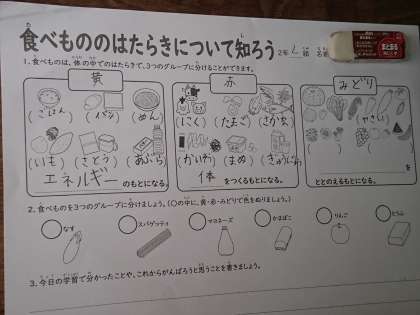 食べもののはたらきについて知ろう
2年 組 名前
1.食べものは、体の中でのはたらきで、3つのグループに分けることができます。
黄 赤 みどり
(ごはん) (パン) (めん) (にく) (たまご) (さかな) (やさい)
(いも) (さとう) (あぶら) (かいそう) (まめ) (ぎゅうにゅう) ( )
エネルギーのもとになる。 体をつくるもとになる。 を
ととのえるもとになる。
2.食べものを3つのグループに分けましょう。(○の中に、黄・赤・みどりで色をぬりましょう。)
なす スパゲッティ マヨネーズ かまぼこ りんご とうふ
3.今日の学習で分かったことや、これからがんばろうと思うことを書きましょう。